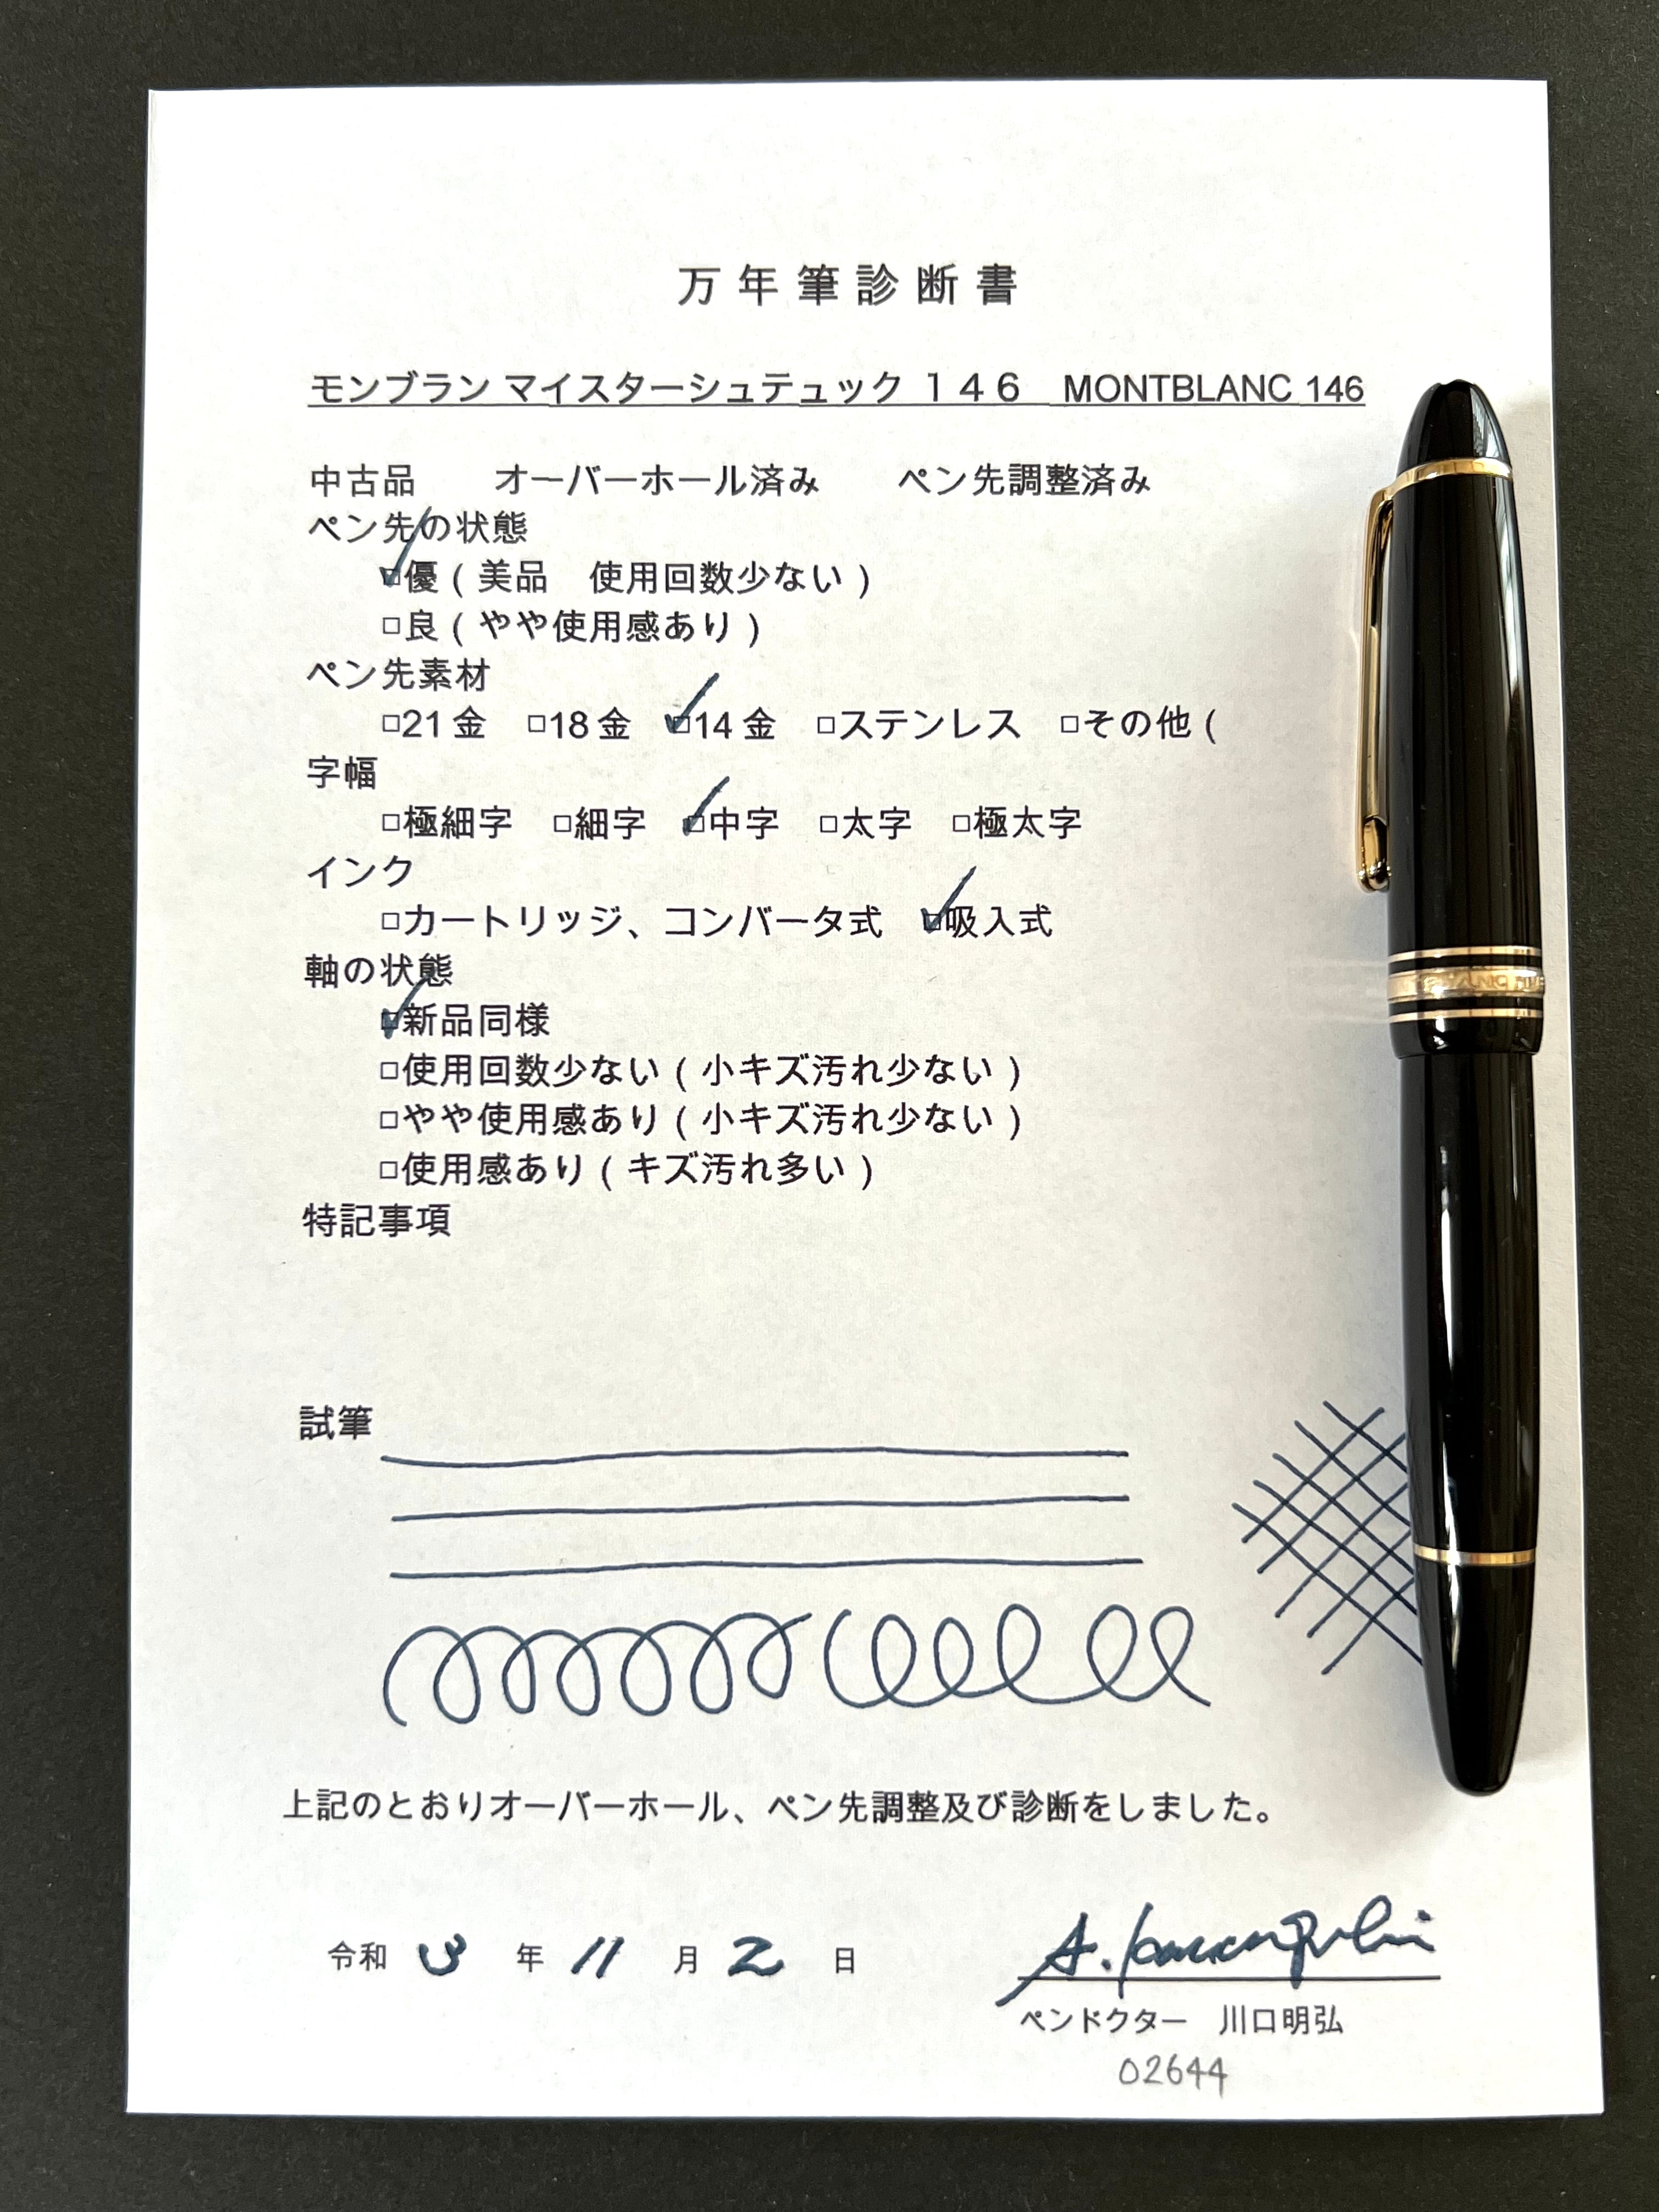 万年筆診断書
モンブラン マイスターシュテュック １４６　MONTBLANC 146
中古品　　オーバーホール済み　　ペン先調整済み
ペン先の状態
☑優（美品　使用回数少ない）
□良（やや使用感あり）
ペン先素材
□21金　□18金　☑14金　□ステンレス　□その他（
字幅
□極細字　□細字　☑中字　□太字　□極太字
インク
□カートリッジ、コンバータ式　☑吸入式
軸の状態
☑新品同様
□使用回数少ない（小キズ汚れ少ない）
□やや使用感あり（小キズ汚れ少ない）
□使用感あり（キズ汚れ多い）
特記事項
試筆
上記のとおりオーバーホール、ペン先調整及び診断をしました。
令和 3 年 11 月 2 日
ペンドクター　川口明弘
02644